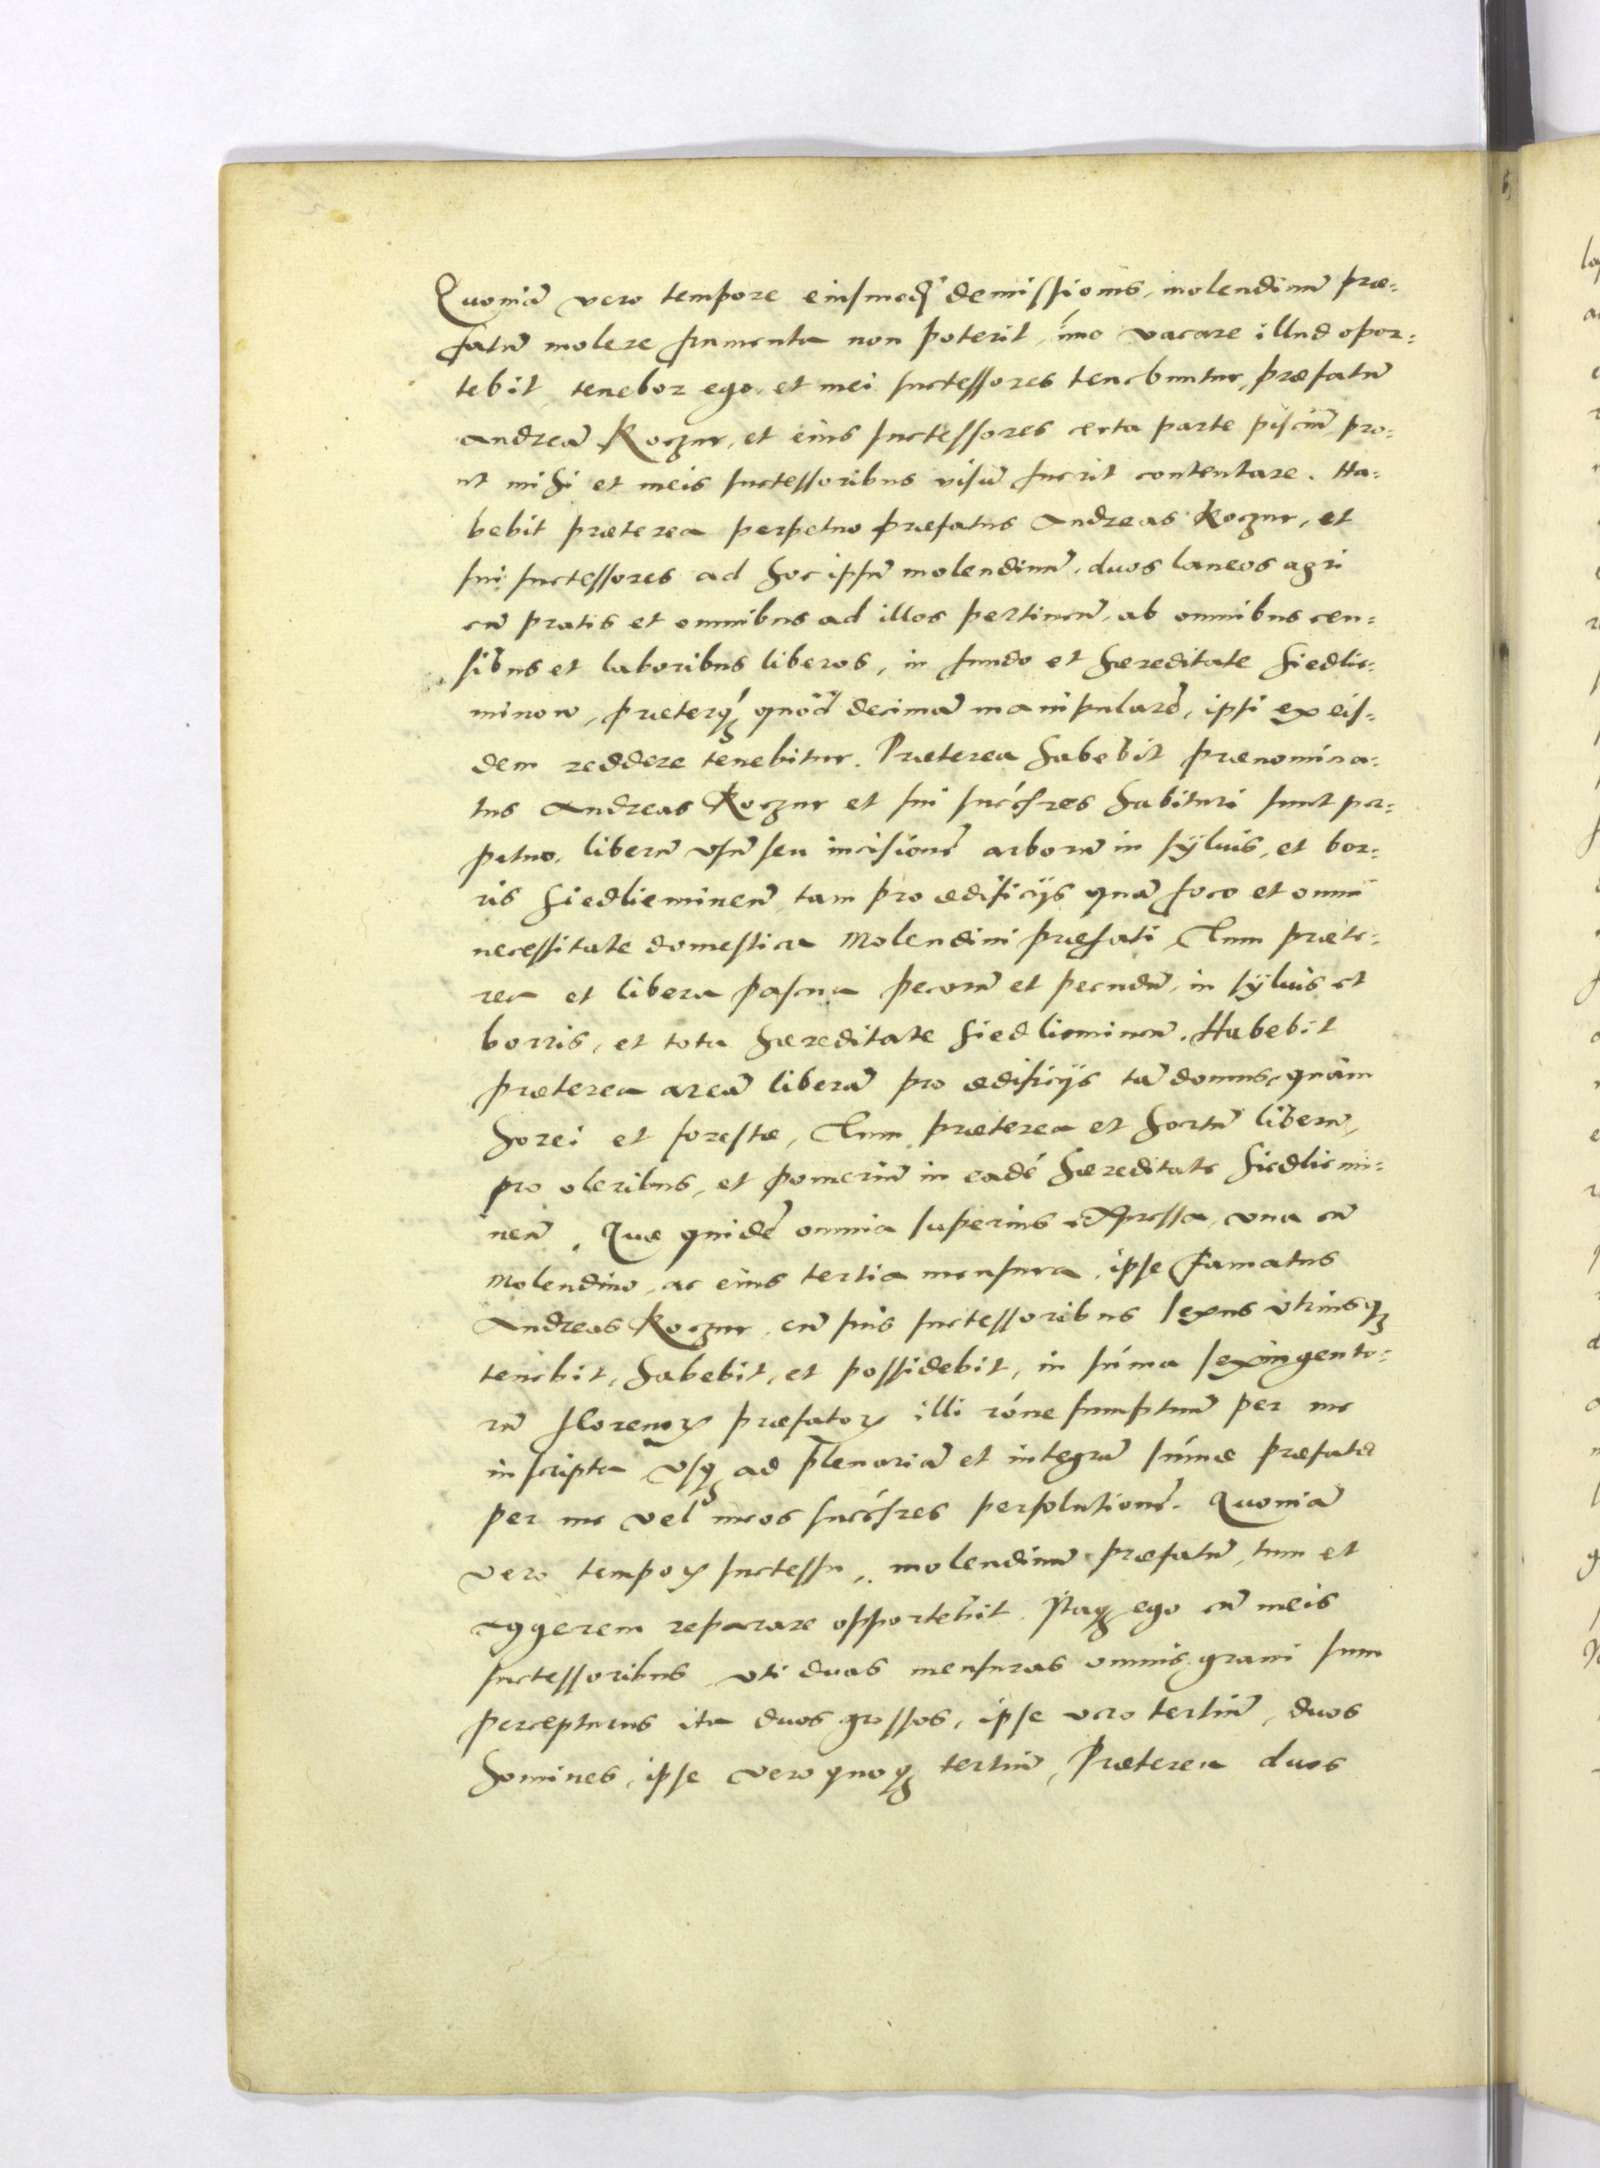 Quoniã vero tempore eiusmodj demissionis, molendinũ præ=
fatũ molere frumenta non poterit, imo vacare illud opor=
tebit, tenebor ego et mei successores tenebuntur, præfatũ
Andreã Koczur, et eius successores certa parte pisciũ, pro=
ut mihi et meis successoribus visũ fuerit contentare. Ha=
bebit præterea perpetuo præfatus Andreas Koczur, et
sui successores ad hoc ipsũ molendinũ, duos laneos agri
cũ pratis et omnibus ad illos pertineñ, ab omnibus cen=
sibus et laboribus liberos, in fundo et hæreditate Siedlie=
minen, præterq́ʒ quod decimã manipularẽ, ipsi ex eis=
dem reddere tenebitur. Præterea habebit prænomina=
tus Andreas Koczur et sui succ̃res habituri sunt per=
petuo, liberũ vsũ seu incisionẽ arborũ in syluis, et bor=
ris Siedlieminen̄ tam pro ædificijs quã foco et omni
necessitate domestica Molendini præfati, Tum præte=
rea et libera pascua pecorũ et pecudũ, in syluis et
borris, et tota hæreditate Siedlieminen̄. Habebit
præterea areã liberã pro ædificijs tã domus, quàm
horei et forestæ, Tum præterea et hortũ liberũ,
pro oleribus, et pomeriũ in eadẽ hæreditate Siedliemi=
nen̄. Quæ quidẽ omnia superius expressa, vna cũ
Molendino, ac eius tertia mensura, ipse famatus
Andreas Koczur, cũ suis successoribus sexus vtriusqʒ
tenebit, habebit, et possidebit, in sũma sexingento=
rũ florenoꝝ præfatoꝝ illi rõne sumptuũ per me
inscripta vsqʒ ad plenariã et integrã sũmæ præfatæ
per me vel meos succ̃res persolutionẽ. Quoniã
vero tempoꝝ successu, molendinũ præfatũ, tum et
aggerem reparare opportebit. Itaqʒ ego cũ meis
successoribus vti duas mensuras omnis grani sum
percepturus ita duos grossos, ipse vero tertiũ, duos
homines, ipse vero quoqʒ tertiũ, Præterea duos